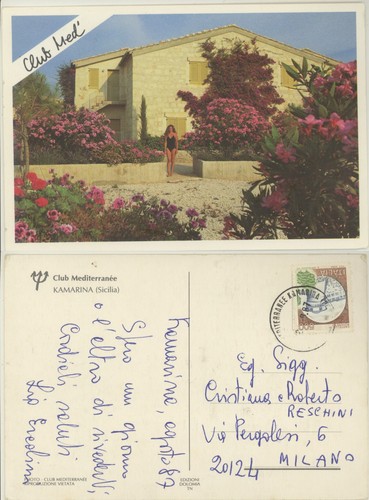 Club Med'
Club Mediterranée
KAMARINA (Sicilia)
Kamarina, agosto 87
Spero un giorno
o l'altro di rivederVi,
Cordiali saluti
Eg. Sigg.
Cristiana e Roberto
RESCHINI
Via Pergolesi, 6
20124 MILANO
FOTO - CLUB MEDITERRANÉE
RIPRODUZIONE VIETATA
EDIZIONI